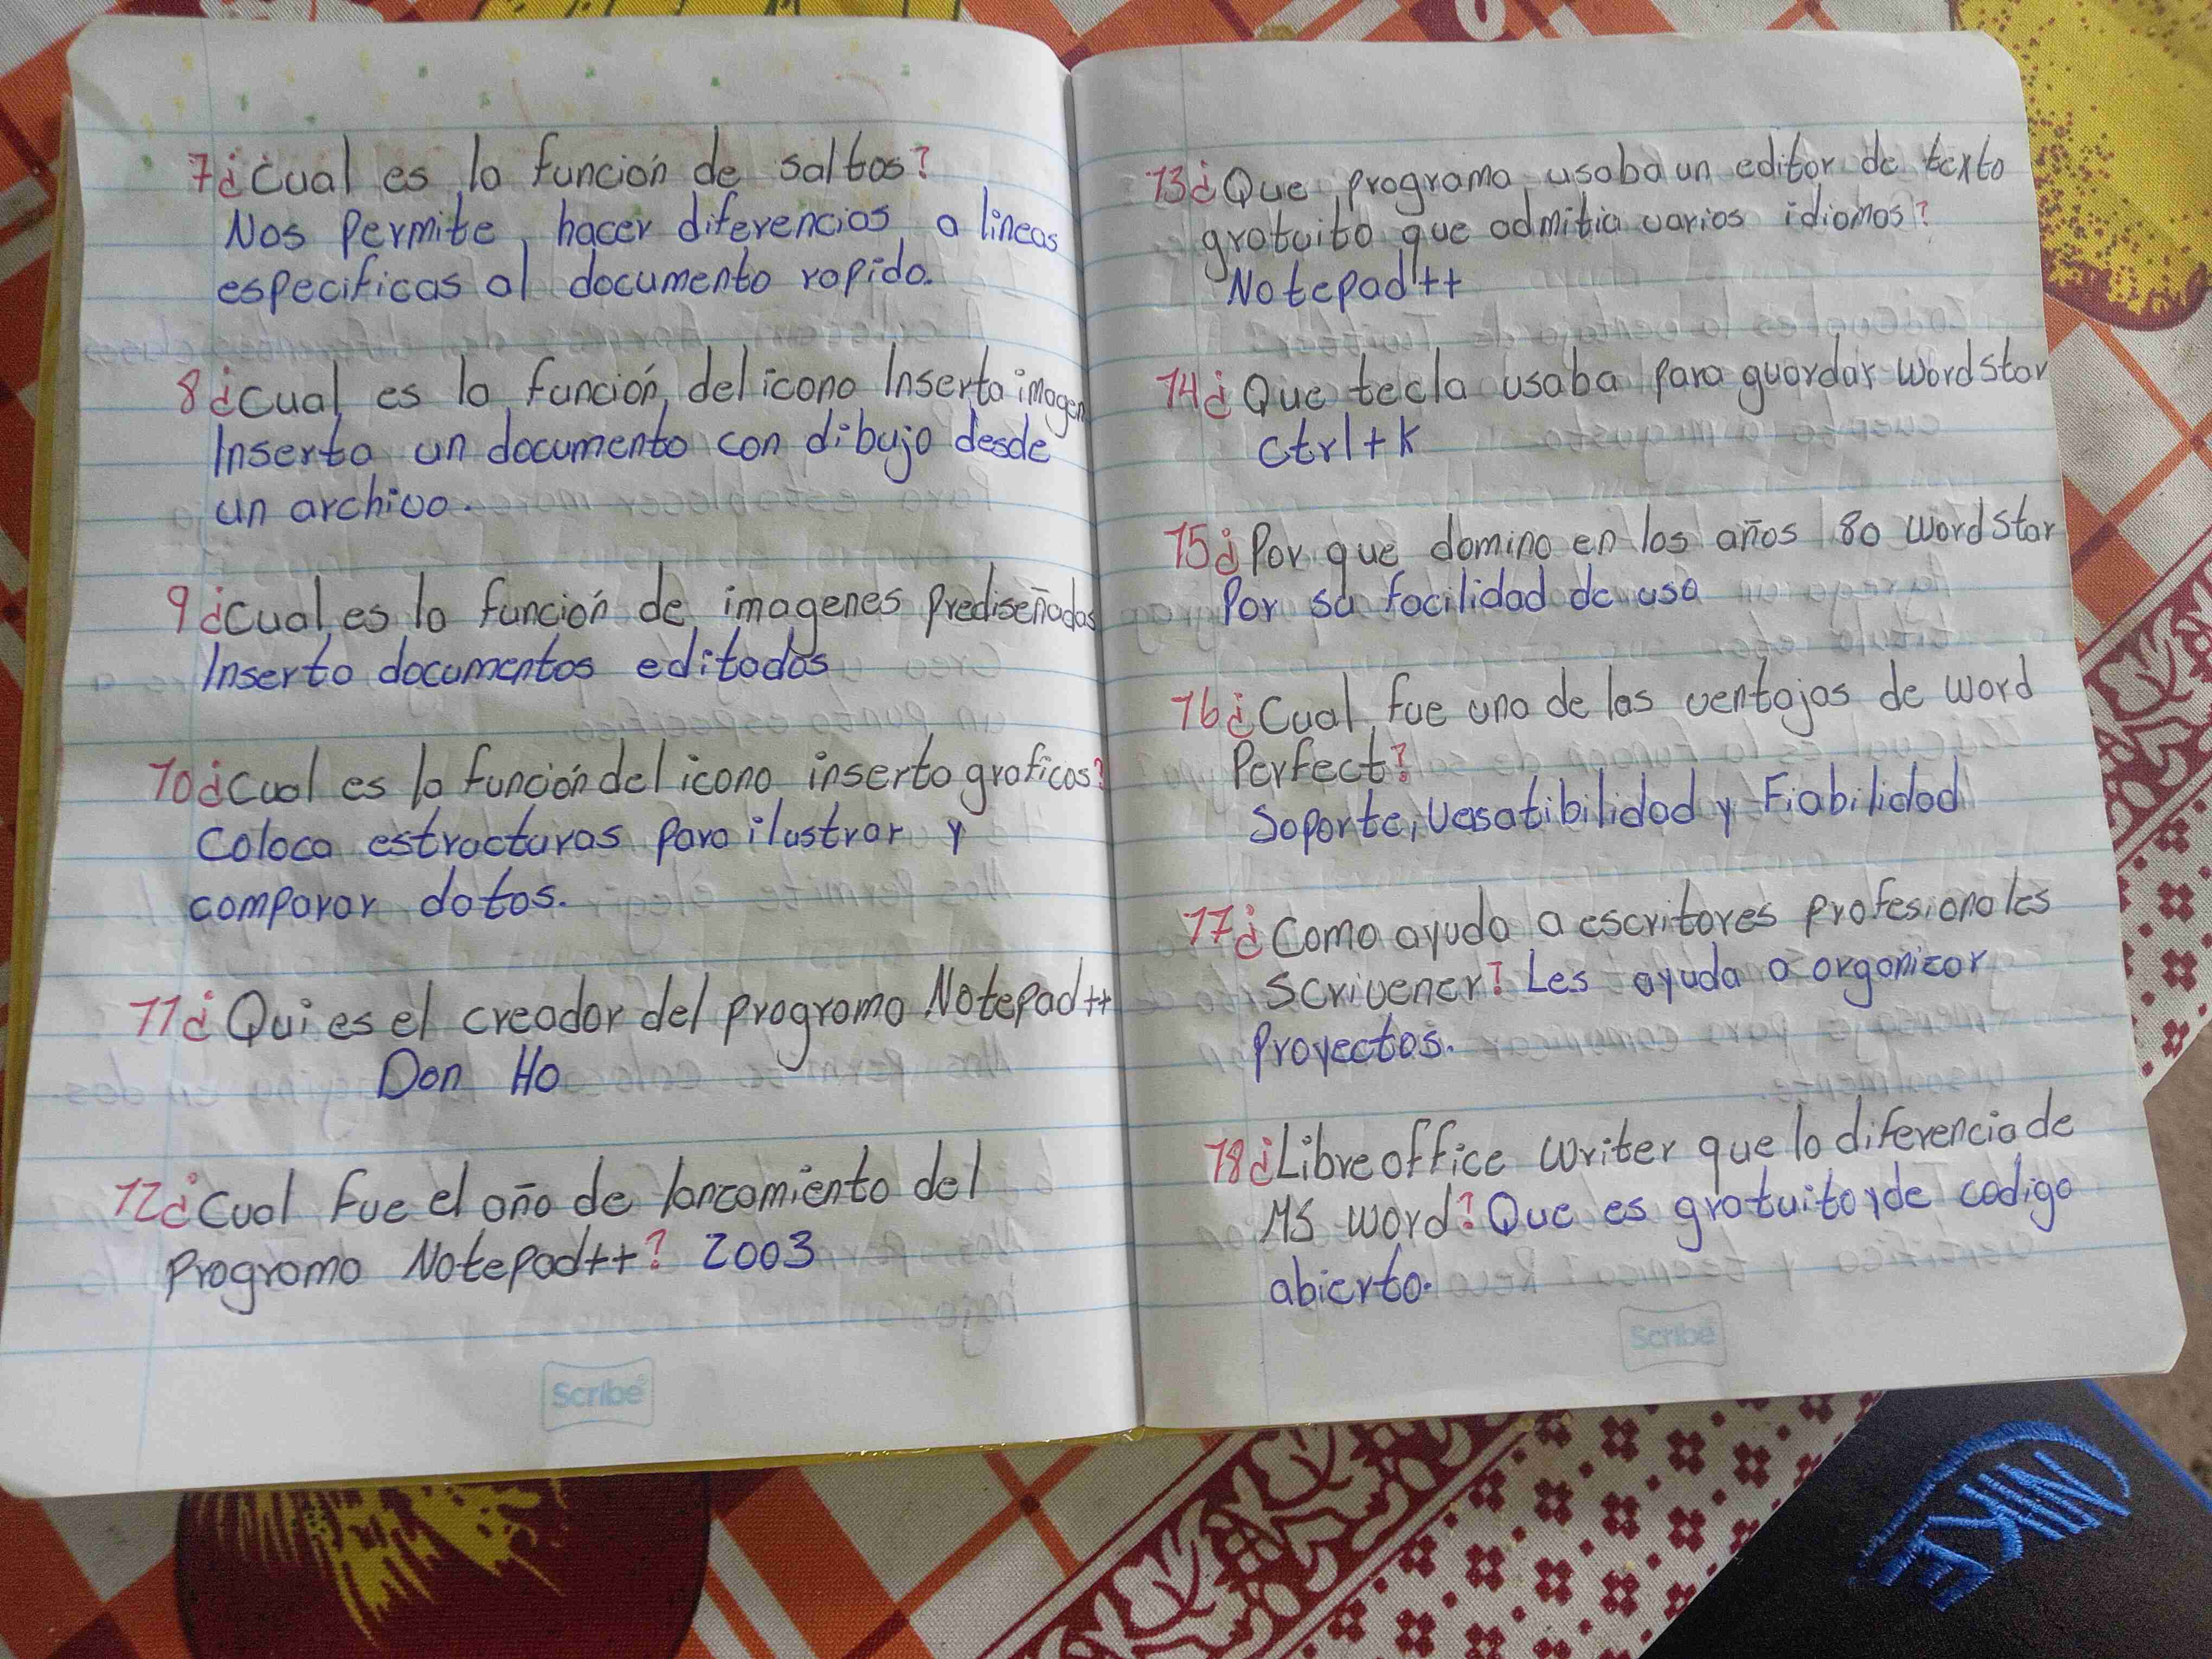 7¿Cual es la función de saltos?
Nos Permite hacer diferencias a lineas
especificas al documento rapido.
8¿Cual es la función del icono Inserta imagen
Inserta un documento con dibujo desde
un archivo.
9¿Cual es la función de imagenes Prediseñadas
Inserta documentos editados
10¿Cual es la función del icono inserta graficos?
Coloca estructuras para ilustrar y
comparar datos.
11¿Qui es el creador del programa Notepad++
Don Ho
12¿Cual fue el año de lanzamiento del
Programa Notepad++? 2003
Scribe
13¿Que programa usaba un editor de texto
gratuito que admitia varios idiomas?
Notepad++
14¿Que tecla usaba para guardar WordStar
Ctrl+K
15¿Por que domino en los años 80 WordStar
Por su facilidad de uso
16¿Cual fue una de las ventajas de Word
Perfect?
Soporte, Vesatibilidad y Fiabilidad
17¿Como ayuda a escritores profesionales
Scrivener? Les ayuda a organizar
Proyectos.
18¿Libreoffice Writer que lo diferencia de
MS Word? Que es gratuito y de codigo
abierto.
Scribe
NIKE